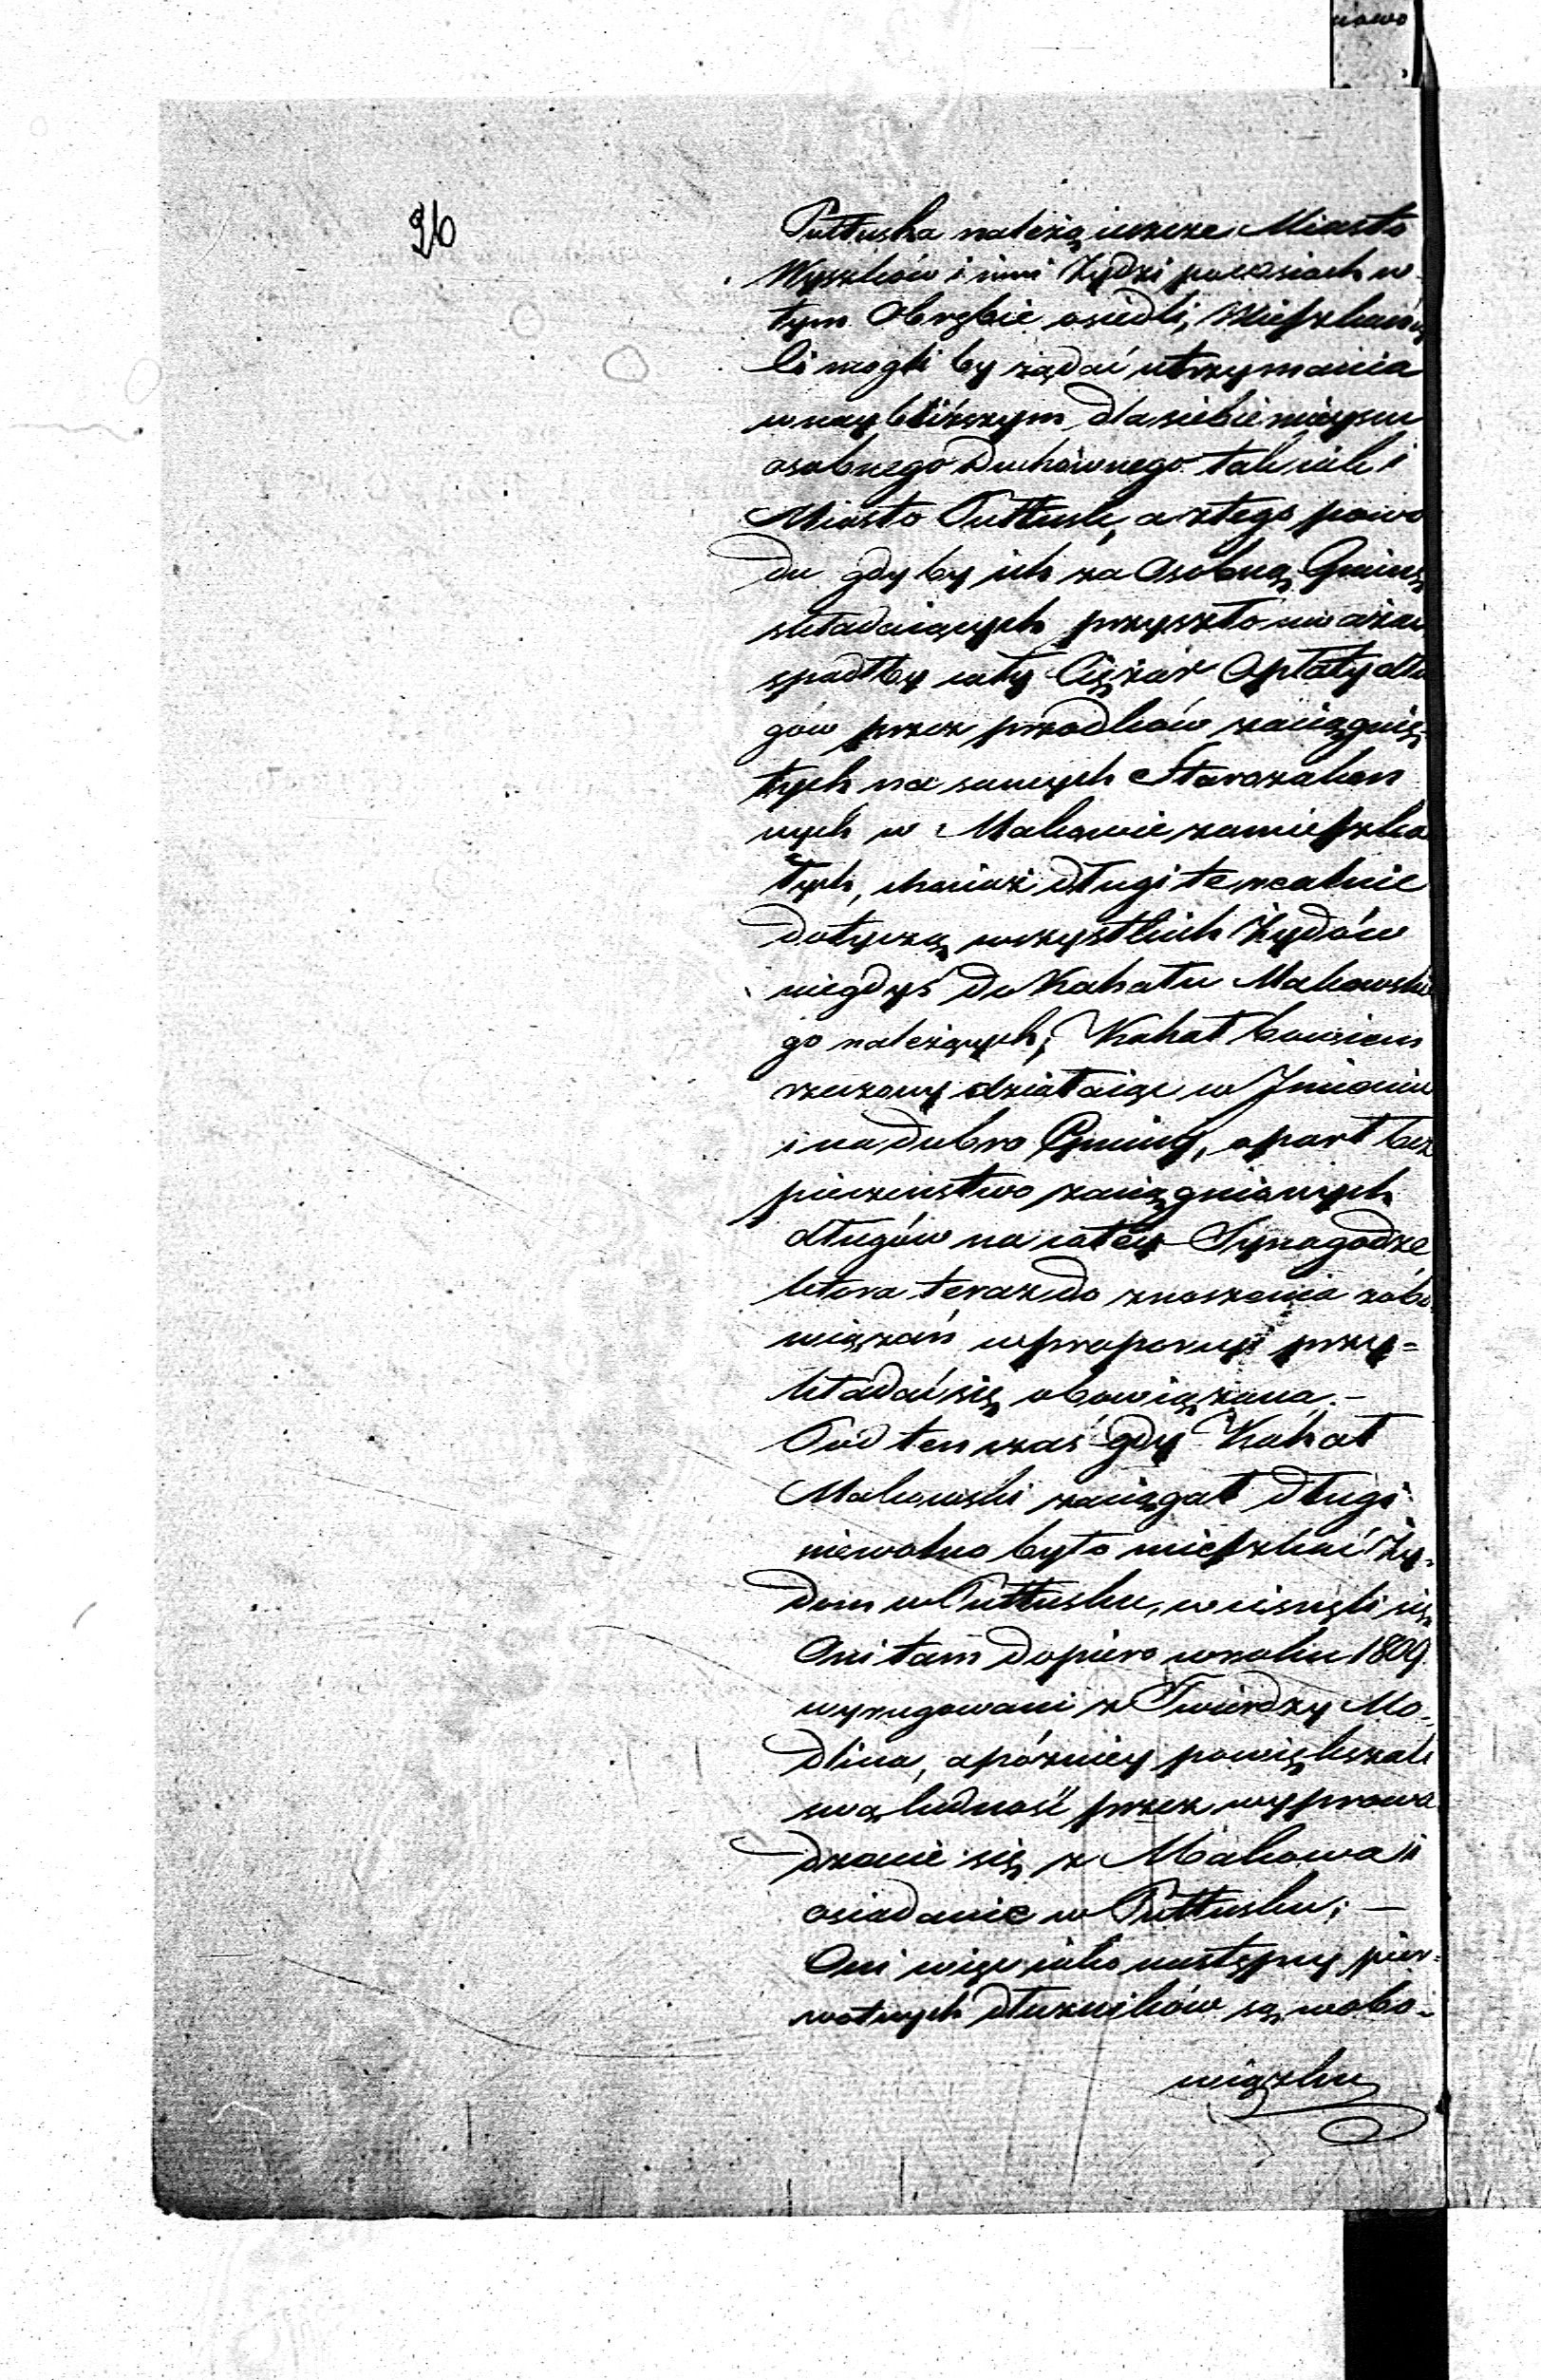 nowo
26
Pułtuska należą ieszcze Miasto
Wyszków i inni Żydzi po wsiach w
tym Obrębie osiedli, Mieszkańcy
Ci mogli by żądać utrzymania
w naybliższym dla siebie mieyscu
osobnego Duchownego tak iak i
Miasto Pułtusk, a z tego powo
du gdyby ich za Osobną Gminę
składaiących przyszło uważać
spadłby cały Ciężar Opłaty dłu
gów przez przodków zaciągnię-
tych na samych Starozakon
nych w Makowie zamieszka
łych, chociaż długi te realnie
dotyczą wszystkich Żydów
niegdyś do Kahału Makowskie
go należących; Kahał bowiem
rzeczony działaiąc w Jmieniu
i na dobro Gminy, oparł bez
pieczeństwo zaciągnionych
długów na całey Synagodze
która teraz do znoszenia zobo
wiązań w proporcyi przy=
kładać się obowiązana.-
Pod ten czas gdy Kahał
Makowski zaciągał długi
niewolno było mieszkać Ży-
dom w Pułtusku, wcisnęli się
Oni tam dopiero w roku 1809.
wyrugowani z Twierdzy Mo-
dlina, a późniey powiększali
swą ludność przez wyprowa
dzanie się z Makowa i
osiadanie w Pułtusku; -
Oni więc iako następcy pier-
wotnych dłużników są w obo-
wiązku